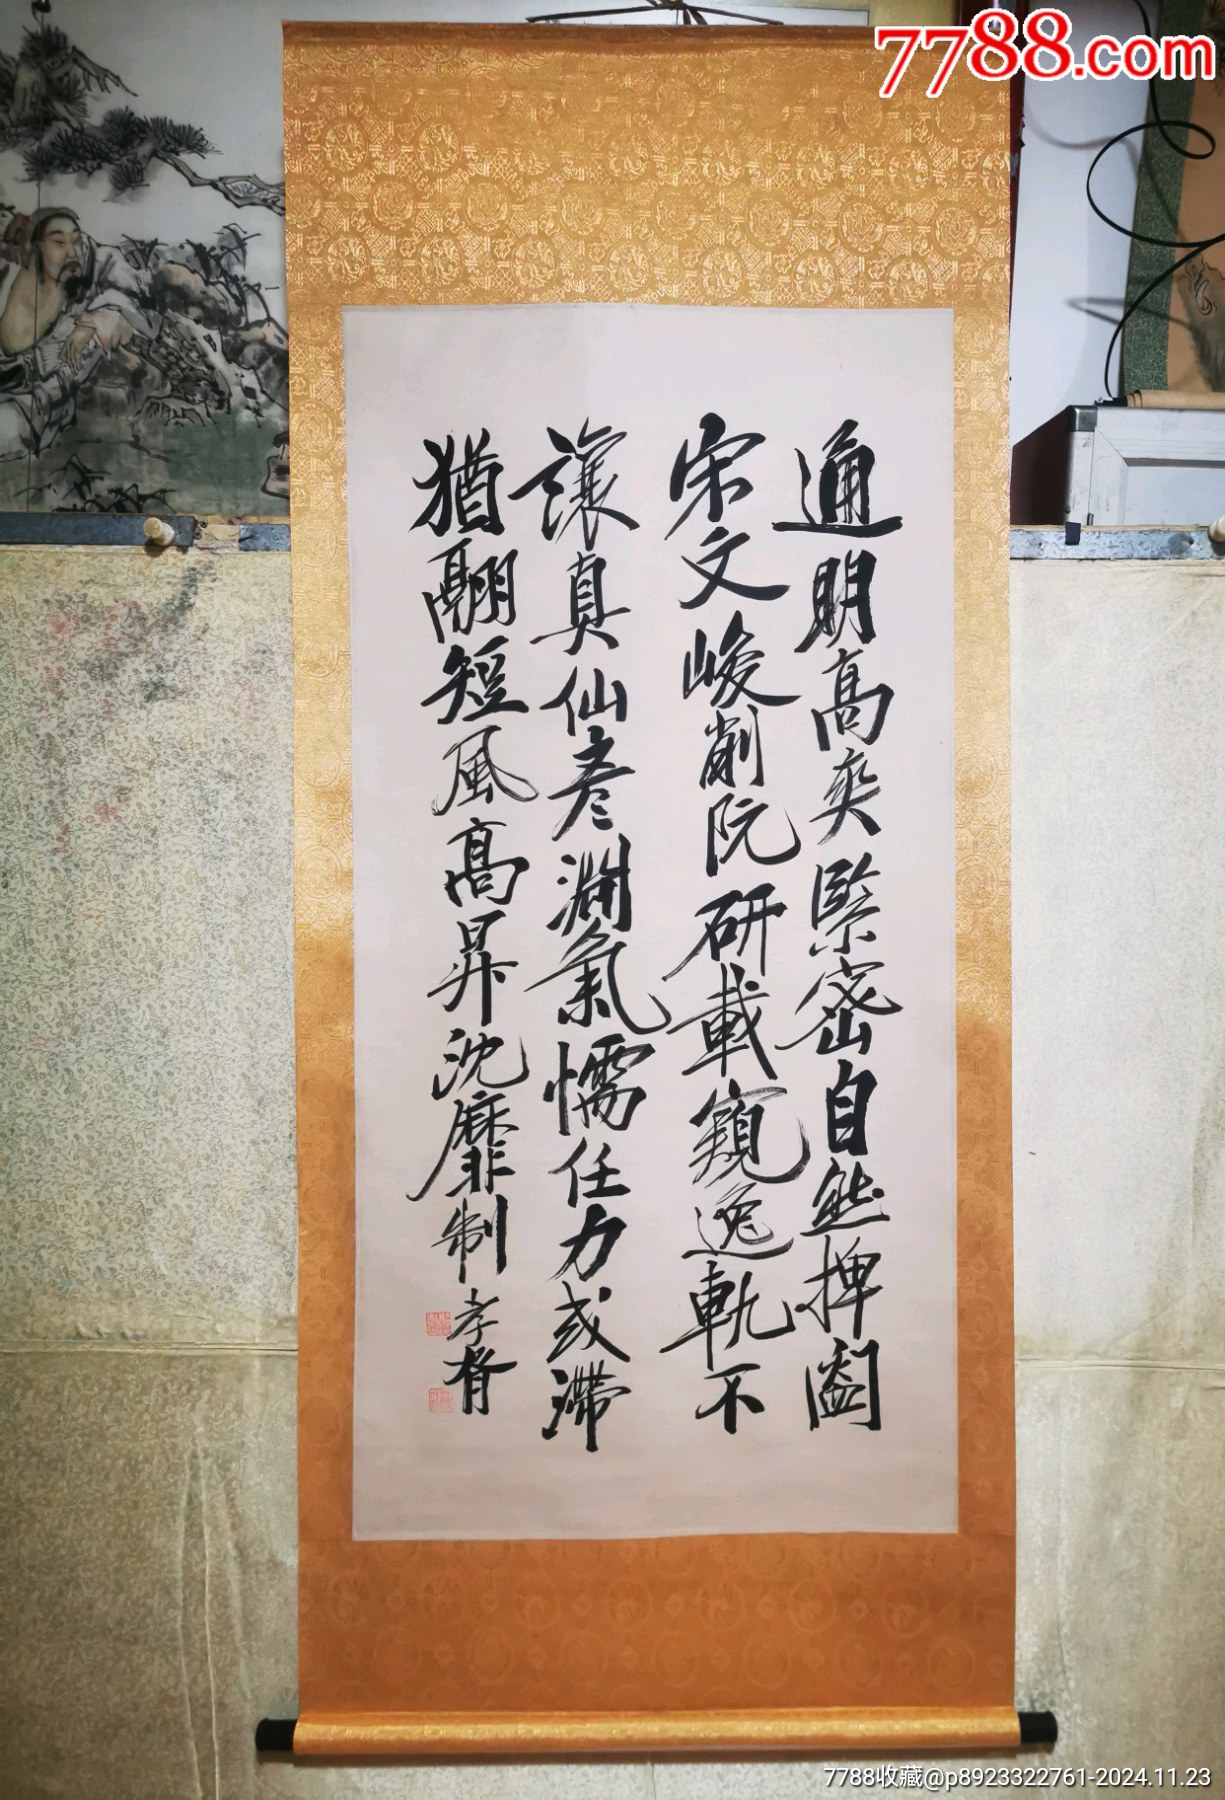 7788.com
通明高爽緊密自然捭闔
宋文峻削阮研載窺逸軌不
讓真仙彥淵氣懦任力或滯
猶翮短風高昇沈靡制 孝胥
7788收藏@p8923322761-2024.11.23